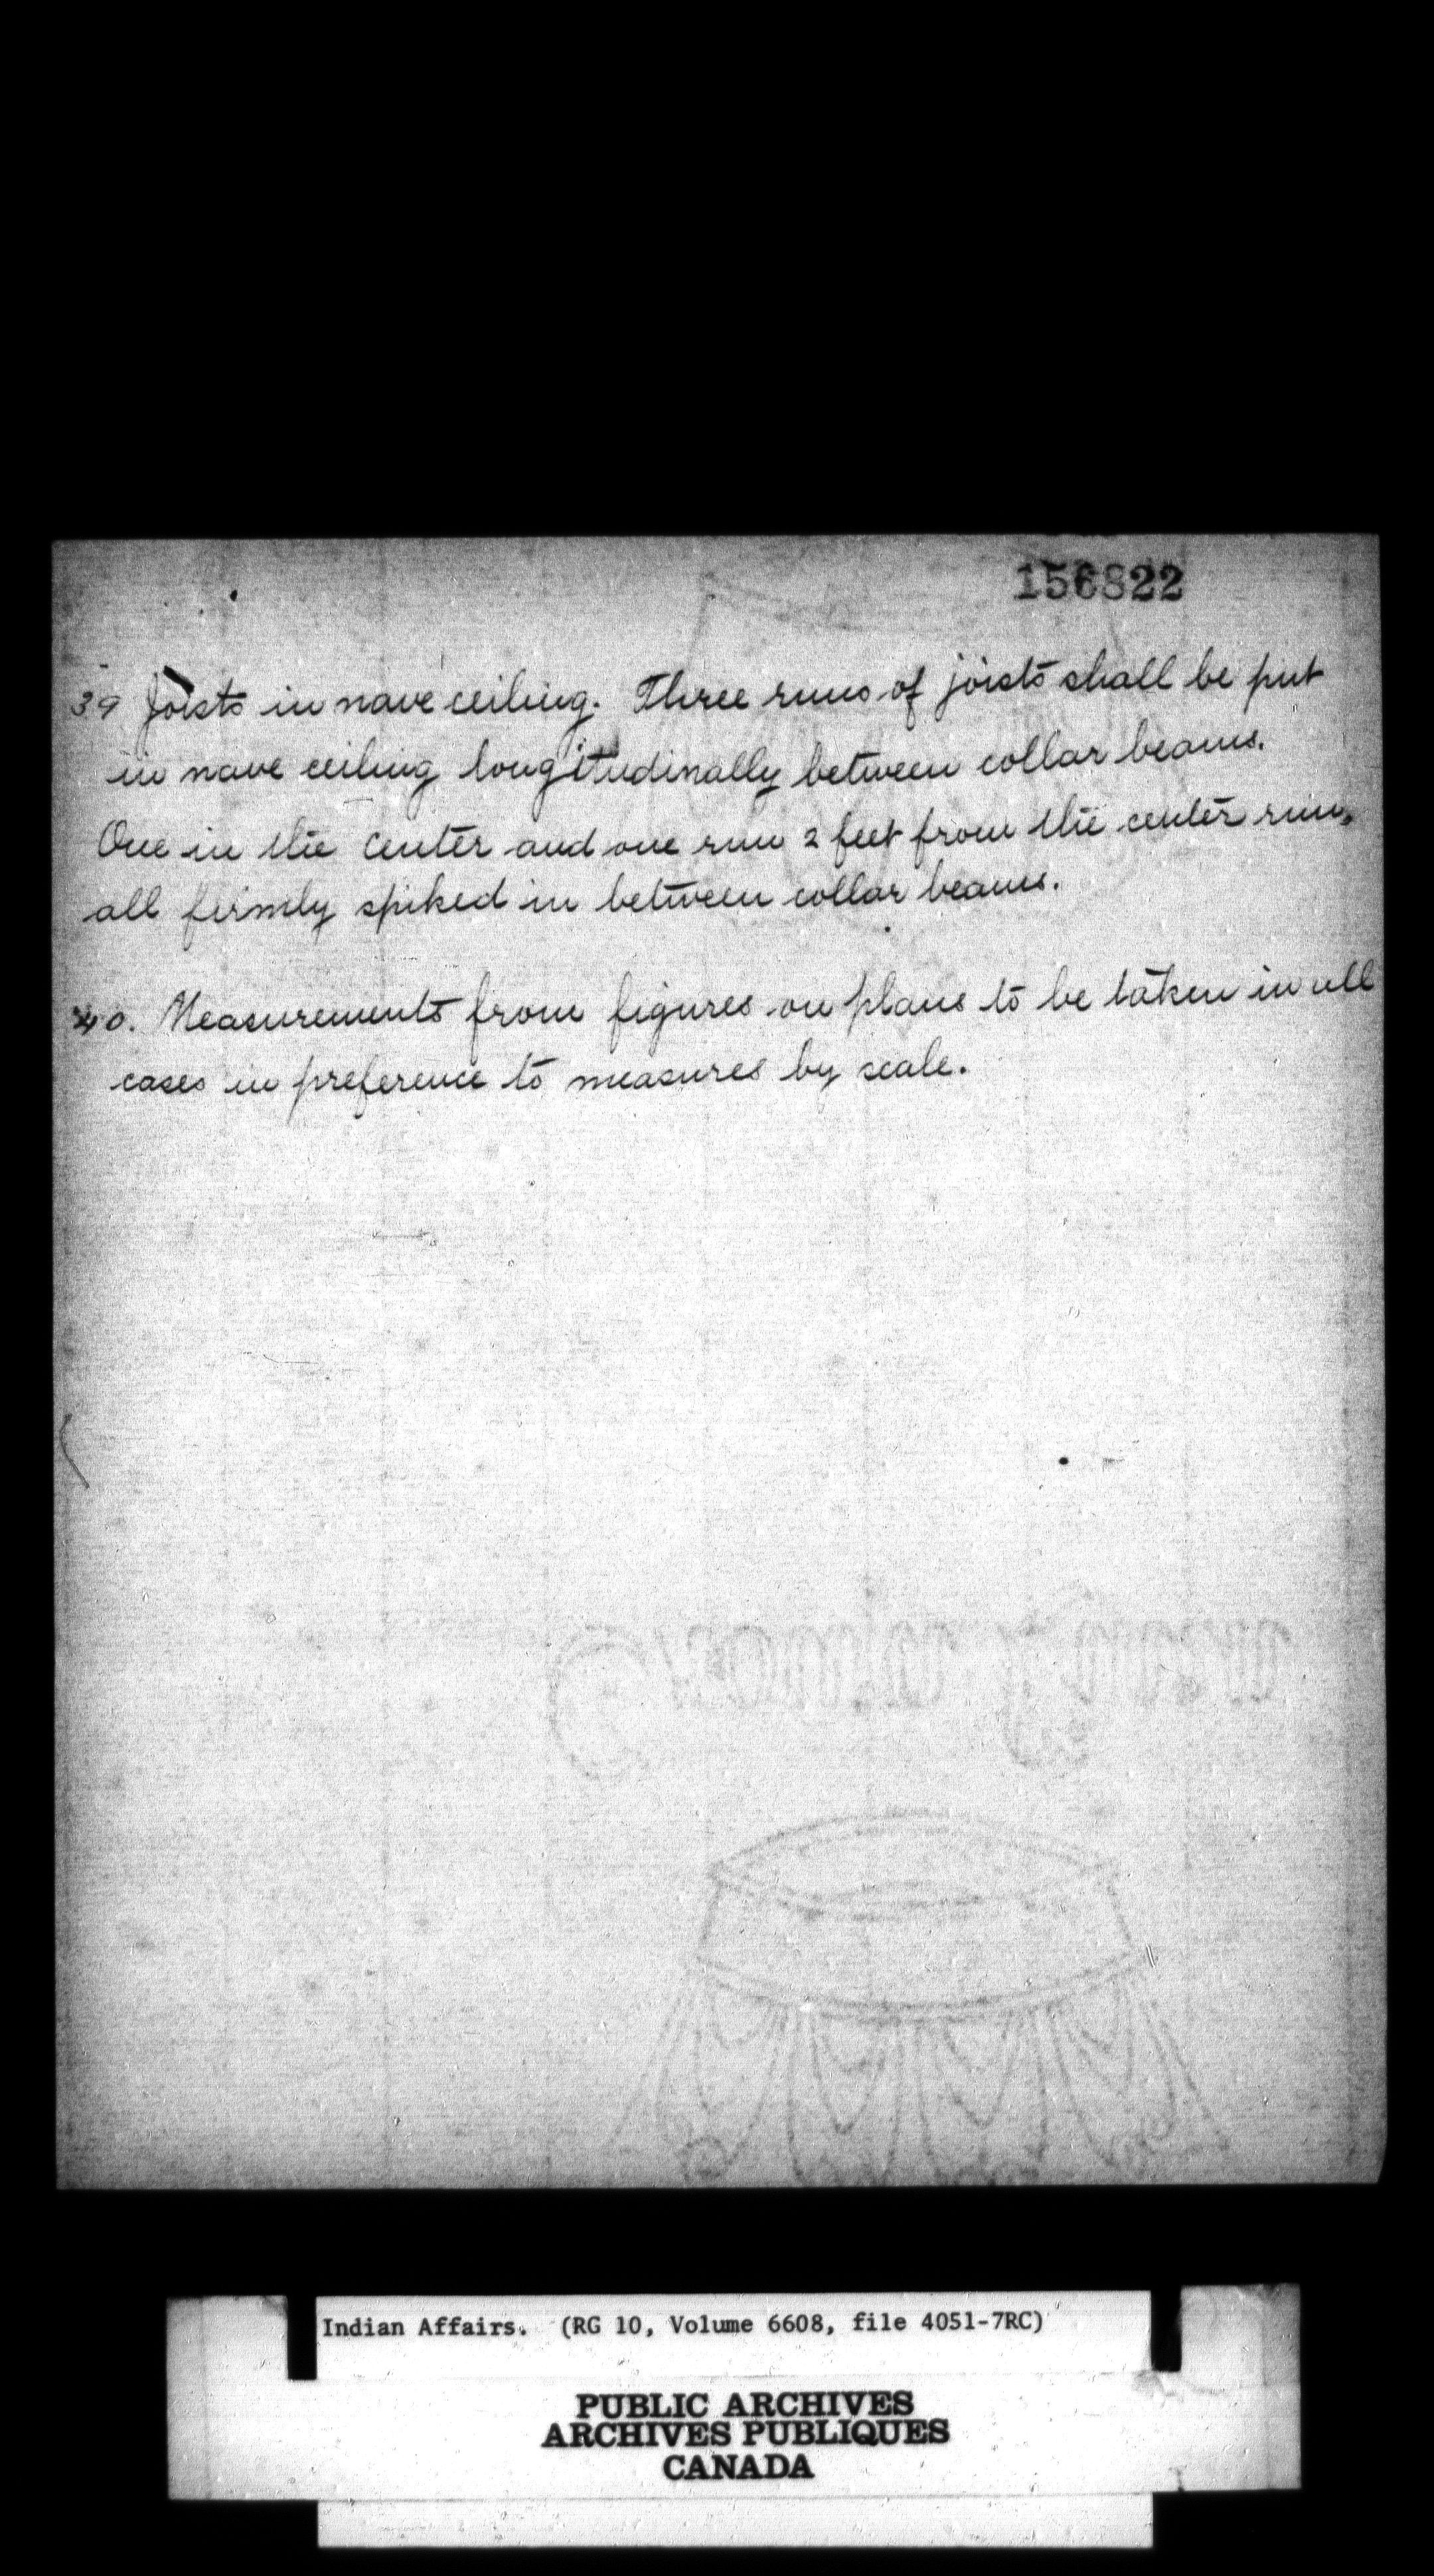 156822
39 Joists in nave ceiling. Three runs of joists shall be put
in nave ceiling longitudinally between collar beams.
One in the center and one run 2 feet from the center run,
all firmly spiked in between collar beams.
40. Measurements from figures on plans to be taken in all
cases in preference to measures by scale.
Indian Affairs. (RG 10, Volume 6608, file 4051-7RC)
PUBLIC ARCHIVES
ARCHIVES PUBLIQUES
CANADA